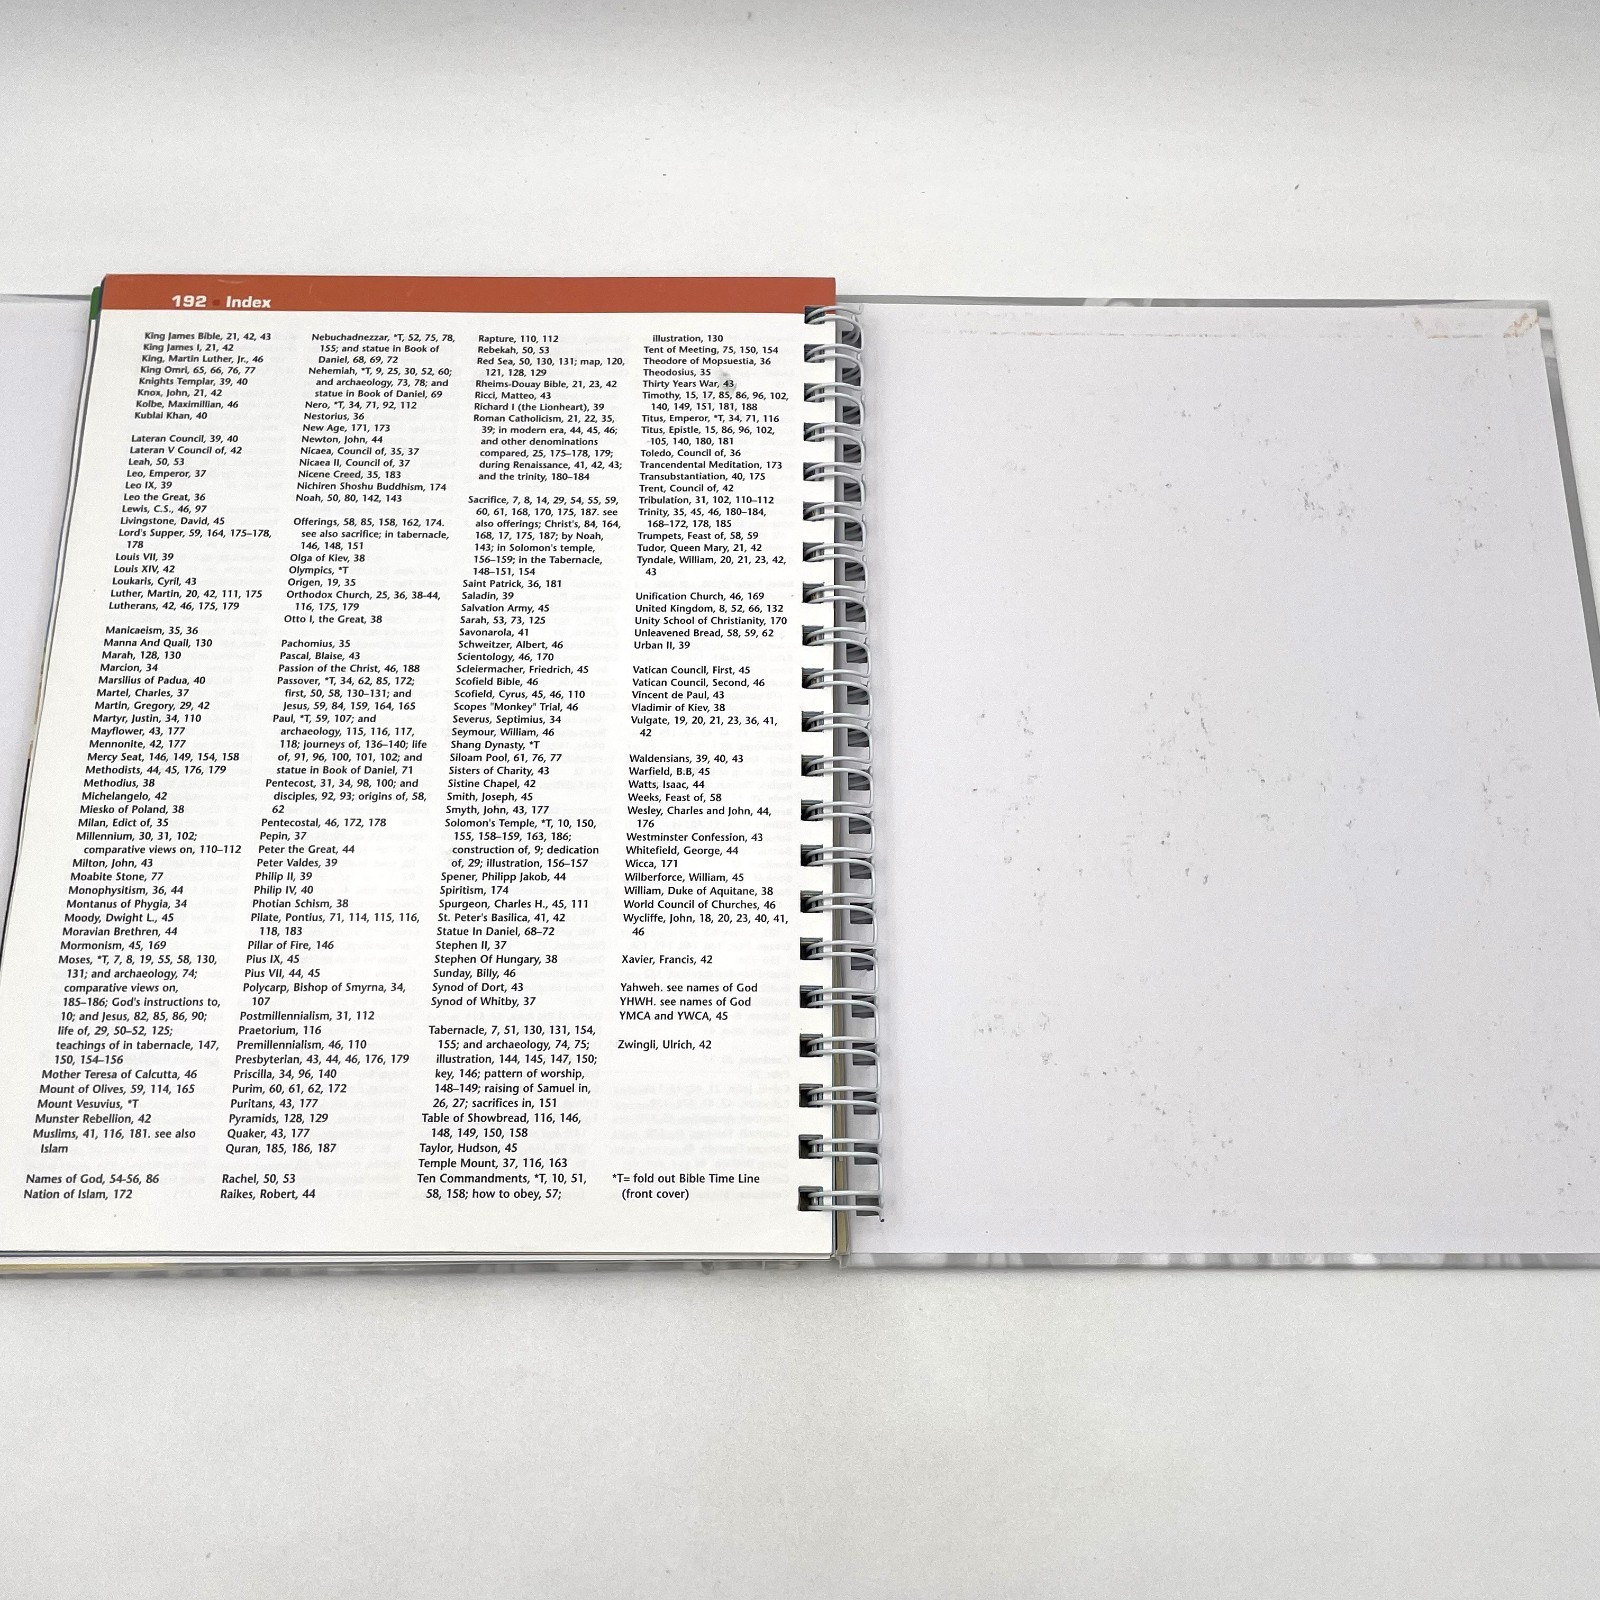 192 • Index
King James Bible, 21, 42, 43
King James I, 21, 42
King, Martin Luther, Jr., 46
King Omri, 65, 66, 76, 77
Knights Templar, 39, 40
Knox, John, 21, 42
Kolbe, Maximillian, 46
Kublai Khan, 40
Lateran Council, 39, 40
Lateran V Council of, 42
Leah, 50, 53
Leo, Emperor, 37
Leo IX, 39
Leo the Great, 36
Lewis, C.S., 46, 97
Livingstone, David, 45
Lord's Supper, 59, 164, 175–178,
178
Louis VII, 39
Louis XIV, 42
Loukaris, Cyril, 43
Luther, Martin, 20, 42, 111, 175
Lutherans, 42, 46, 175, 179
Manicaeism, 35, 36
Manna And Quail, 130
Marah, 128, 130
Marcion, 34
Marsilius of Padua, 40
Martel, Charles, 37
Martin, Gregory, 29, 42
Martyr, Justin, 34, 110
Mayflower, 43, 177
Mennonite, 42, 177
Mercy Seat, 146, 149, 154, 158
Methodists, 44, 45, 176, 179
Methodius, 38
Michelangelo, 42
Miesko of Poland, 38
Milan, Edict of, 35
Millennium, 30, 31, 102;
comparative views on, 110–112
Milton, John, 43
Moabite Stone, 77
Monophysitism, 36, 44
Montanus of Phygia, 34
Moody, Dwight L., 45
Moravian Brethren, 44
Mormonism, 45, 169
Moses, *T, 7, 8, 19, 55, 58, 130,
131; and archaeology, 74;
comparative views on,
185–186; God's instructions to,
10; and Jesus, 82, 85, 86, 90;
life of, 29, 50–52, 125;
teachings of in tabernacle, 147,
150, 154–156
Mother Teresa of Calcutta, 46
Mount of Olives, 59, 114, 165
Mount Vesuvius, *T
Munster Rebellion, 42
Muslims, 41, 116, 181. see also
Islam
Names of God, 54-56, 86
Nation of Islam, 172
Nebuchadnezzar, *T, 52, 75, 78,
155; and statue in Book of
Daniel, 68, 69, 72
Nehemiah, *T, 9, 25, 30, 52, 60;
and archaeology, 73, 78; and
statue in Book of Daniel, 69
Nero, *T, 34, 71, 92, 112
Nestorius, 36
New Age, 171, 173
Newton, John, 44
Nicaea, Council of, 35, 37
Nicaea II, Council of, 37
Nicene Creed, 35, 183
Nichiren Shoshu Buddhism, 174
Noah, 50, 80, 142, 143
Offerings, 58, 85, 158, 162, 174.
see also sacrifice; in tabernacle,
146, 148, 151
Olga of Kiev, 38
Olympics, *T
Origen, 19, 35
Orthodox Church, 25, 36, 38-44,
116, 175, 179
Otto I, the Great, 38
Pachomius, 35
Pascal, Blaise, 43
Passion of the Christ, 46, 188
Passover, *T, 34, 62, 85, 172;
first, 50, 58, 130–131; and
Jesus, 59, 84, 159, 164, 165
Paul, *T, 59, 107; and
archaeology, 115, 116, 117,
118; journeys of, 136–140; life
of, 91, 96, 100, 101, 102; and
statue in Book of Daniel, 71
Pentecost, 31, 34, 98, 100; and
disciples, 92, 93; origins of, 58,
62
Pentecostal, 46, 172, 178
Pepin, 37
Peter the Great, 44
Peter Valdes, 39
Philip II, 39
Philip IV, 40
Photian Schism, 38
Pilate, Pontius, 71, 114, 115, 116,
118, 183
Pillar of Fire, 146
Pius IX, 45
Pius VII, 44, 45
Polycarp, Bishop of Smyrna, 34,
107
Postmillennialism, 31, 112
Praetorium, 116
Premillennialism, 46, 110
Presbyterian, 43, 44, 46, 176, 179
Priscilla, 34, 96, 140
Purim, 60, 61, 62, 172
Puritans, 43, 177
Pyramids, 128, 129
Quaker, 43, 177
Quran, 185, 186, 187
Rachel, 50, 53
Raikes, Robert, 44
Rapture, 110, 112
Rebekah, 50, 53
Red Sea, 50, 130, 131; map, 120,
121, 128, 129
Rheims-Douay Bible, 21, 23, 42
Ricci, Matteo, 43
Richard I (the Lionheart), 39
Roman Catholicism, 21, 22, 35,
39; in modern era, 44, 45, 46;
and other denominations
compared, 25, 175–178, 179;
during Renaissance, 41, 42, 43;
and the trinity, 180–184
Sacrifice, 7, 8, 14, 29, 54, 55, 59,
60, 61, 168, 170, 175, 187. see
also offerings; Christ's, 84, 164,
168, 17, 175, 187; by Noah,
143; in Solomon's temple,
156–159; in the Tabernacle,
148–151, 154
Saint Patrick, 36, 181
Saladin, 39
Salvation Army, 45
Sarah, 53, 73, 125
Savonarola, 41
Schweitzer, Albert, 46
Scientology, 46, 170
Scleiermacher, Friedrich, 45
Scofield Bible, 46
Scofield, Cyrus, 45, 46, 110
Scopes "Monkey" Trial, 46
Severus, Septimius, 34
Seymour, William, 46
Shang Dynasty, *T
Siloam Pool, 61, 76, 77
Sisters of Charity, 43
Sistine Chapel, 42
Smith, Joseph, 45
Smyth, John, 43, 177
Solomon's Temple, *T, 10, 150,
155, 158–159, 163, 186;
construction of, 9; dedication
of, 29; illustration, 156–157
Spener, Philipp Jakob, 44
Spiritism, 174
Spurgeon, Charles H., 45, 111
St. Peter's Basilica, 41, 42
Statue In Daniel, 68–72
Stephen II, 37
Stephen Of Hungary, 38
Sunday, Billy, 46
Synod of Dort, 43
Synod of Whitby, 37
Tabernacle, 7, 51, 130, 131, 154,
155; and archaeology, 74, 75;
illustration, 144, 145, 147, 150;
key, 146; pattern of worship,
148–149; raising of Samuel in,
26, 27; sacrifices in, 151
Table of Showbread, 116, 146,
148, 149, 150, 158
Taylor, Hudson, 45
Temple Mount, 37, 116, 163
Ten Commandments, *T, 10, 51,
58, 158; how to obey, 57;
illustration, 130
Tent of Meeting, 75, 150, 154
Theodore of Mopsuestia, 36
Theodosius, 35
Thirty Years War, 43
Timothy, 15, 17, 85, 86, 96, 102,
140, 149, 151, 181, 188
Titus, Emperor, *T, 34, 71, 116
Titus, Epistle, 15, 86, 96, 102,
105, 140, 180, 181
Toledo, Council of, 36
Trancendental Meditation, 173
Transubstantiation, 40, 175
Trent, Council of, 42
Tribulation, 31, 102, 110–112
Trinity, 35, 45, 46, 180–184,
168–172, 178, 185
Trumpets, Feast of, 58, 59
Tudor, Queen Mary, 21, 42
Tyndale, William, 20, 21, 23, 42,
43
Unification Church, 46, 169
United Kingdom, 8, 52, 66, 132
Unity School of Christianity, 170
Unleavened Bread, 58, 59, 62
Urban II, 39
Vatican Council, First, 45
Vatican Council, Second, 46
Vincent de Paul, 43
Vladimir of Kiev, 38
Vulgate, 19, 20, 21, 23, 36, 41,
42
Waldensians, 39, 40, 43
Warfield, B.B, 45
Watts, Isaac, 44
Weeks, Feast of, 58
Wesley, Charles and John, 44,
176
Westminster Confession, 43
Whitefield, George, 44
Wicca, 171
Wilberforce, William, 45
William, Duke of Aquitane, 38
World Council of Churches, 46
Wycliffe, John, 18, 20, 23, 40, 41,
46
Xavier, Francis, 42
Yahweh. see names of God
YHWH. see names of God
YMCA and YWCA, 45
Zwingli, Ulrich, 42
*T= fold out Bible Time Line
(front cover)